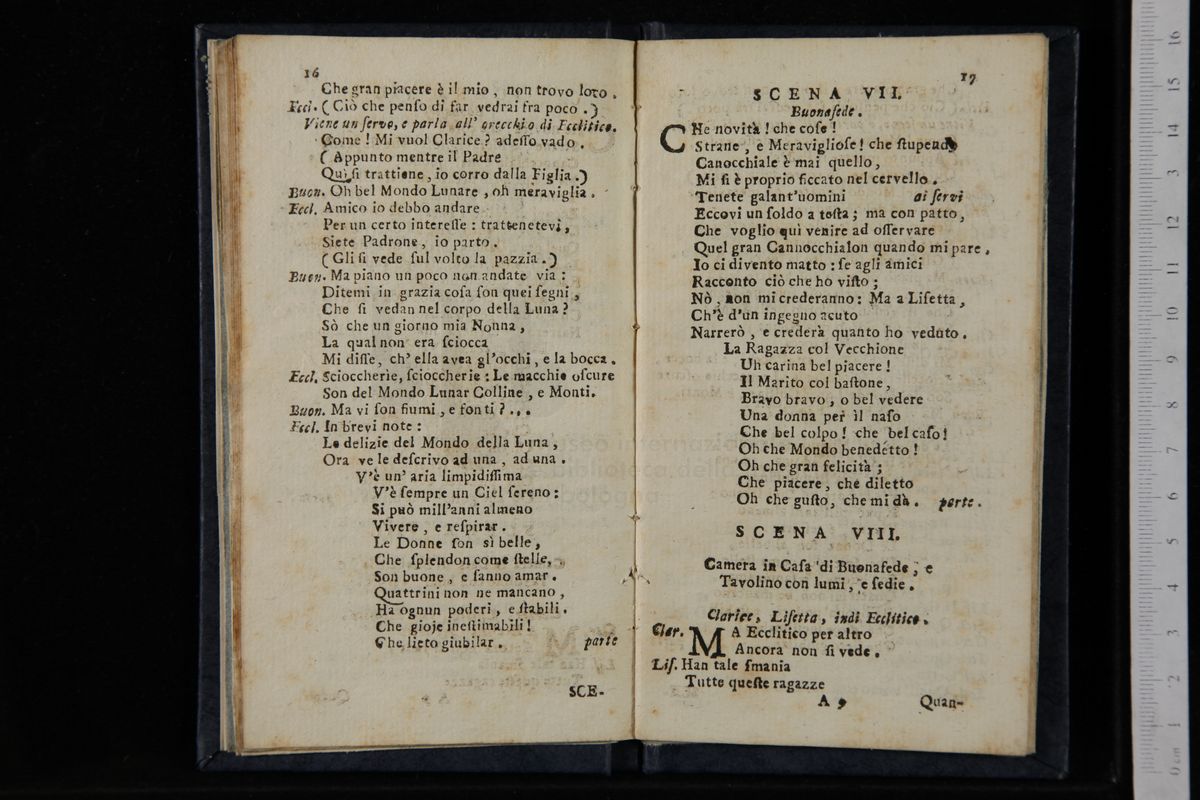 16
Che gran piacere è il mio , non trovo loro .
Eccl. ( Ciò che penſo di far vedrai fra poco . )
Viene un ſervo, e parla all' orecchio di Ecclitico.
Come ! Mi vuol Clarice ? adeſſo vado .
( Appunto mentre il Padre
Qui ſi trattiene , io corro dalla Figlia . )
Buon. Oh bel Mondo Lunare , oh meraviglia .
Eccl. Amico io debbo andare
Per un certo intereſſe : trattenetevi ,
Siete Padrone , io parto .
( Gli ſi vede ſul volto la pazzia . )
Buon. Ma piano un poco non andate via :
Ditemi in grazia coſa ſon quei ſegni ,
Che ſi vedan nel corpo della Luna ?
Sò che un giorno mia Nonna ,
La qual non era ſciocca
Mi diſſe, ch' ella avea gl'occhi , e la bocca .
Eccl. Scioccherie, ſcioccherie : Le macchie oſcure
Son del Mondo Lunar Colline , e Monti.
Buon. Ma vi ſon fiumi , e fonti ? . . .
Eccl. In brevi note :
Le delizie del Mondo della Luna ,
Ora ve le deſcrivo ad una , ad una .
V'è un' aria limpidiſſima
V'è ſempre un Ciel ſereno :
Si può mill'anni almeno
Vivere , e reſpirar .
Le Donne ſon sì belle ,
Che ſplendon come ſtelle ,
Son buone , e fanno amar .
Quattrini non ne mancano ,
Ha ognun poderi , e ſtabili .
Che gioje ineſtimabili !
Che lieto giubilar . parte
SCE-
17
SCENA VII.
Buonafede .
CHe novità ! che coſe !
Strane , e Meraviglioſe ! che ſtupendo
Canocchiale è mai quello ,
Mi ſi è proprio ficcato nel cervello .
Tenete galant'uomini ai ſervi
Eccovi un ſoldo a teſta ; ma con patto ,
Che voglio qui venire ad oſſervare
Quel gran Cannocchialon quando mi pare .
Io ci divento matto : ſe agli amici
Racconto ciò che ho viſto ;
Nò , non mi crederanno : Ma a Liſetta ,
Ch'è d'un ingegno acuto
Narrerò , e crederà quanto ho veduto .
La Ragazza col Vecchione
Uh carina bel piacere !
Il Marito col baſtone ,
Bravo bravo , o bel vedere
Una donna per il naſo
Che bel colpo ! che bel caſo !
Oh che Mondo benedetto !
Oh che gran felicità ;
Che piacere , che diletto
Oh che guſto , che mi dà . parte .
SCENA VIII.
Camera in Caſa di Buonafede , e
Tavolino con lumi , e ſedie .
Clarice , Liſetta , indi Ecclitico .
Clar. MA Ecclitico per altro
Ancora non ſi vede .
Liſ. Han tale ſmania
Tutte queſte ragazze
A 9 Quan-
museo internazionale
e biblioteca della
bologna
0 cm 1 2 3 4 5 6 7 8 9 10 11 12 13 14 15 16